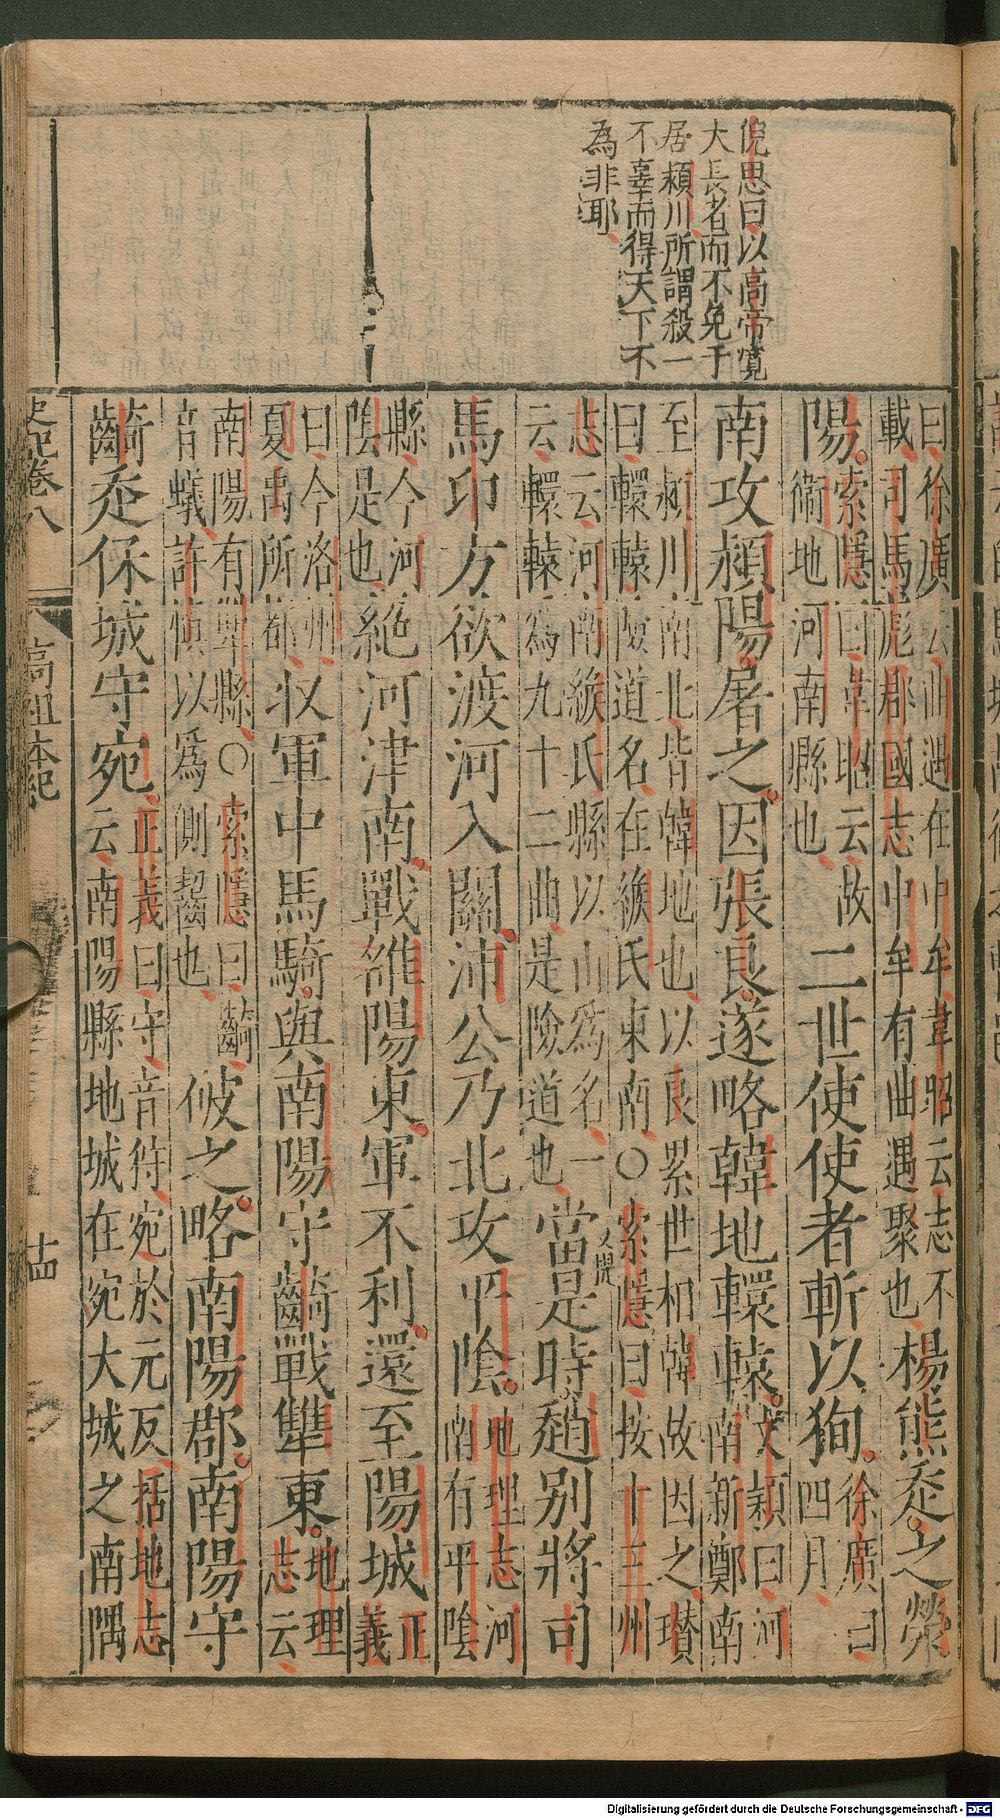 倪思曰以高帝寛
大長者而不免于
居潁川所謂殺一
不辜而得天下不
為非耶
曰徐廣云曲遇在中牟韋昭云志不
載司馬彪郡國志中牟有曲遇聚也楊熊走之滎
陽索隱曰韋昭云故
衞地河南縣也二世使使者斬以狥徐廣曰
四月
南攻潁陽屠之因張良遂略韓地轘轅文潁曰河
南新鄭南
至潁川南北皆韓地也以良累世相韓故因之瓚
曰轘轅險道名在緱氏東南○索隱曰按十三州
志云河南緱氏縣以山爲名一
云轘轅爲九十二曲是險道也當是時趙別將司
馬卬方欲渡河入關沛公乃北攻平陰地理志河
南有平陰
縣今河
陰是也絕河津南戰雒陽東軍不利還至陽城正
義
曰今洛州
夏禹所都収軍中馬騎與南陽守齮戰犨東地理
志云
南陽有犨縣○索隱曰
音蟻許愼以爲側齧也破之略南陽郡南陽守
齮走保城守宛正義曰守音狩宛於元反括地志
云南陽縣地城在宛大城之南隅
史記卷八
高祖本紀
十四
Digitalisierung gefördert durch die Deutsche Forschungsgemeinschaft - DFG